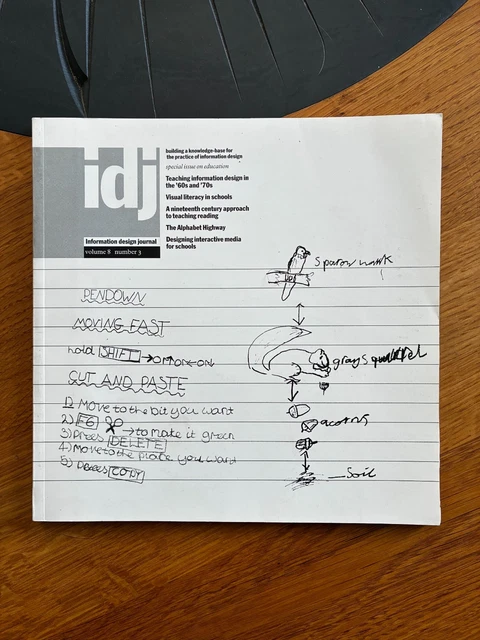 idj
Information design journal
volume 8 number 3
building a knowledge-base for
the practice of information design
special issue on education
Teaching information design in
the '60s and '70s
Visual literacy in schools
A nineteenth century approach
to teaching reading
The Alphabet Highway
Designing interactive media
for schools
PENDOWN
MOVING FAST
hold SHIFT →
CUT AND PASTE
1) Move to the bit you want
2) F6 → to make it green
3) Press DELETE
4) Move to the place you want
5) Press COPY
Sparow hawk
gray
acorns
Soil